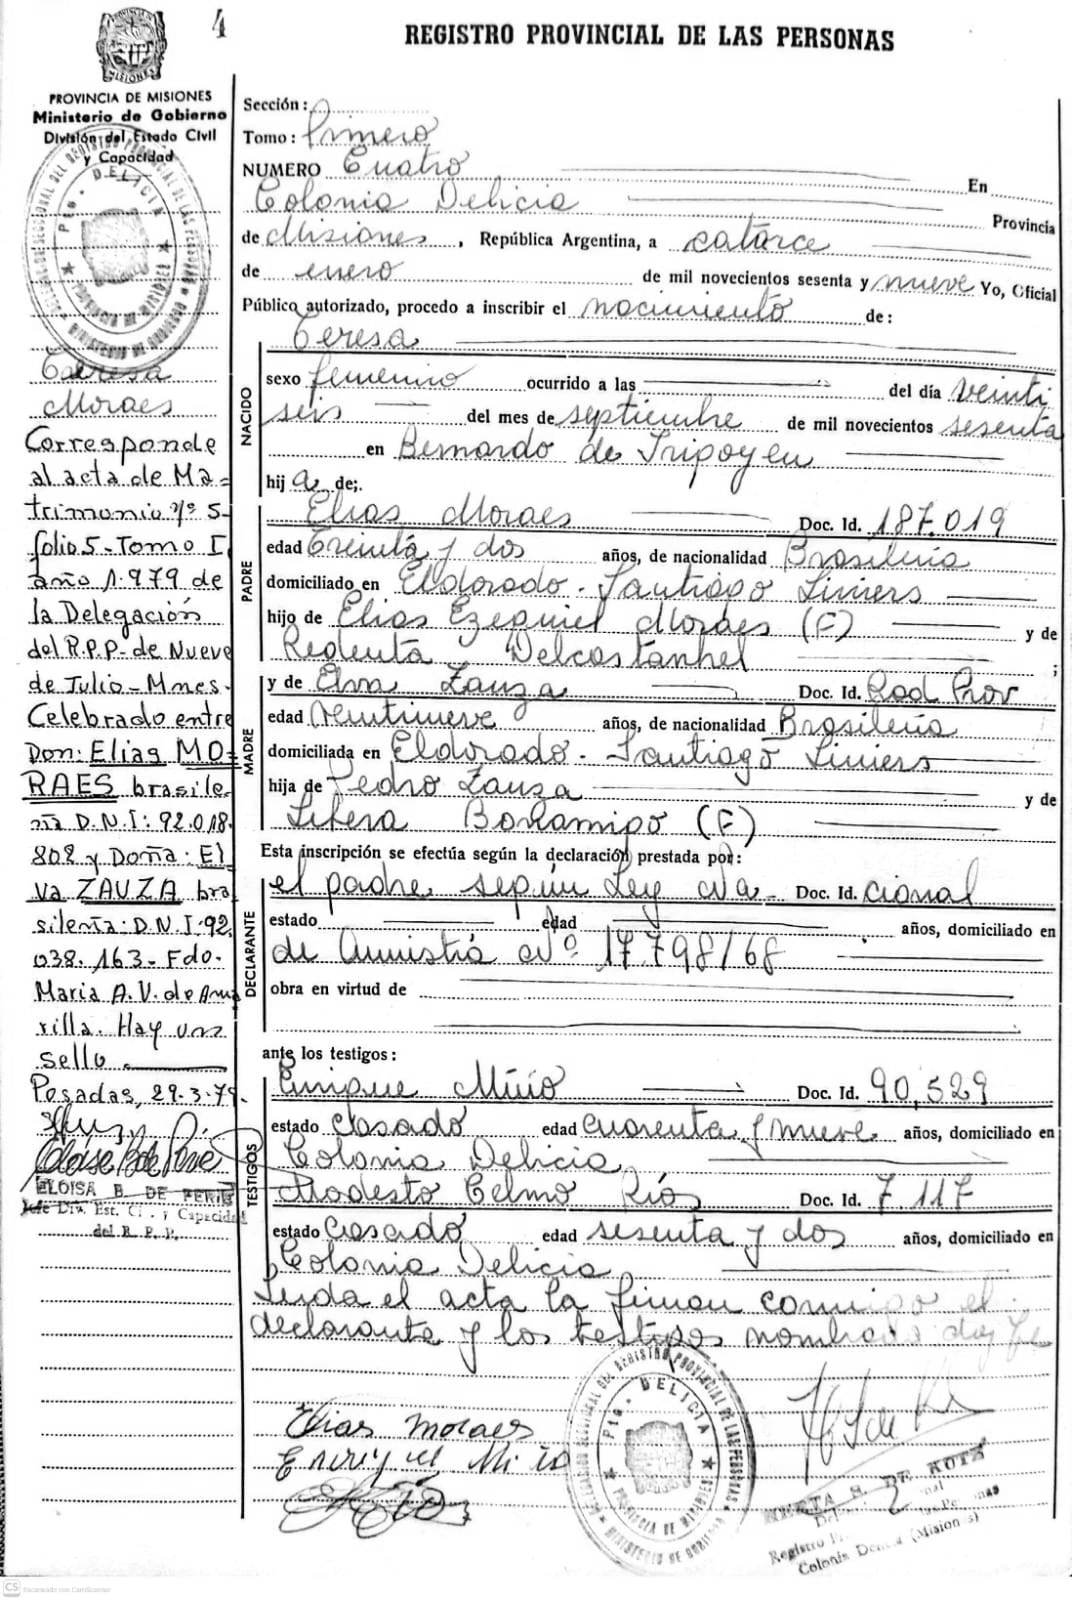 4
REGISTRO PROVINCIAL DE LAS PERSONAS
MISIONES
PROVINCIA DE MISIONES
Ministerio de Gobierno
División del Estado Civil
y Capacidad
Pto. DELICIA
PROVINCIA DE MISIONES
MINISTERIO DE GOBIERNO
Teresa
Moraes
Corresponde
al acta de Ma=
trimonio Nº 5-
folio 5-Tomo I,
año 1.979 de
la Delegación
del R.P.P-de Nueve
de Julio-Mnes.
Celebrado entre
Don: Elias MO=
RAES brasile-
ño D.N.I: 92.018.
808 y Doña: El
va ZAUZA bra
sileña: D.N.I-92.
038.163- Fdo.
Maria A.V. de Ama
rilla. Hay un
sello.
Posadas, 29-3-79.
ELOISA B. DE PERIE
Jefe Div. Est. Ci . y Capacidad
del R. P. P.
Sección:
Tomo: Primero
NUMERO Cuatro
En
Colonia Delicia
Provincia
de Misiones, República Argentina, a catorce
de enero de mil novecientos sesenta y nueve Yo, Oficial
Público autorizado, procedo a inscribir el nacimiento de:
Teresa
NACIDO
sexo femenino ocurrido a las del día veinti
seis del mes de septiembre de mil novecientos sesenta
en Bernardo de Iripoyen
hij a de;.
PADRE
Elias Moraes Doc. Id. 187.019
edad Treinta y dos años, de nacionalidad Brasileña
domiciliado en Eldorado - Santiago Liniers
hijo de Elias Ezequiel Moraes (F) y de
Redenta Delcostanhel ;
MADRE
y de Elva Zauza Doc. Id. Rad Prov
edad Veintinueve años, de nacionalidad Brasileña
domiciliada en Eldorado - Santiago Liniers
hija de Pedro Zauza y de
Libera Bonamigo (F)
Esta inscripción se efectúa según la declaración prestada por:
DECLARANTE
el padre según Ley Na- Doc. Id. cional
estado edad años, domiciliado en
de Amnistía Nº 17798/68
obra en virtud de
ante los testigos:
TESTIGOS
Enrique Miño Doc. Id. 90,529
estado Casado edad cuarenta y nueve años, domiciliado en
Colonia Delicia
Modesto Celmo Ríos Doc. Id. 7.117
estado Casado edad sesenta y dos años, domiciliado en
Colonia Delicia
Leida el acta la firman conmigo el
declarante y los testigos nombrados doy fe
Elias Moraes
Enriquel Miño
Pto. DELICIA
PROVINCIA DE MISIONES
MINISTERIO DE GOBIERNO
S. DE KOTZ
Colonia Delicia (Misiones)
CS Escaneado con CamScanner